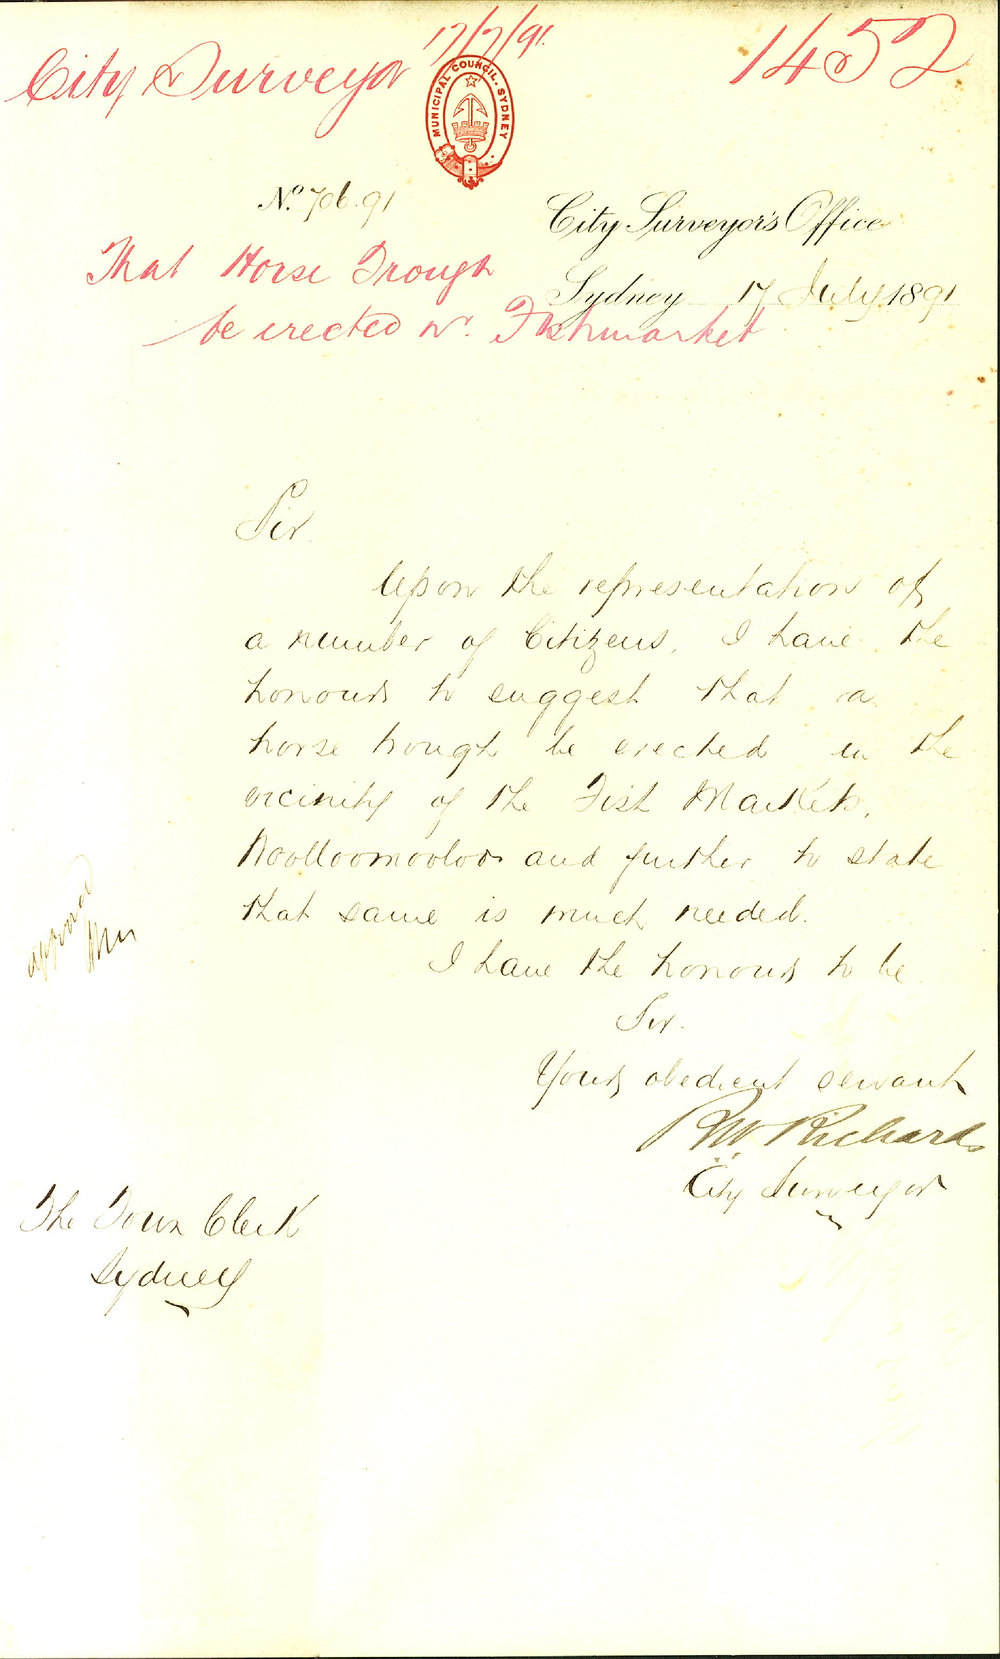 City Surveyor 17/7/91. 1452
MUNICIPAL COUNCIL. SYDNEY
No. 706.91
City Surveyor's Office
That Horse Trough
Sydney 17 July 1891
be erected nr. Fishmarket
Sir.
Upon the representations of
a number of Citizens, I have the
honour to suggest that a
horse trough be erected in the
vicinity of the Fish Markets,
Woolloomooloo and further to state
that same is much needed.
approved
I have the honour to be
Sir.
Your obedient servant
R.W. Richards
City Surveyor
The Town Clerk
Sydney